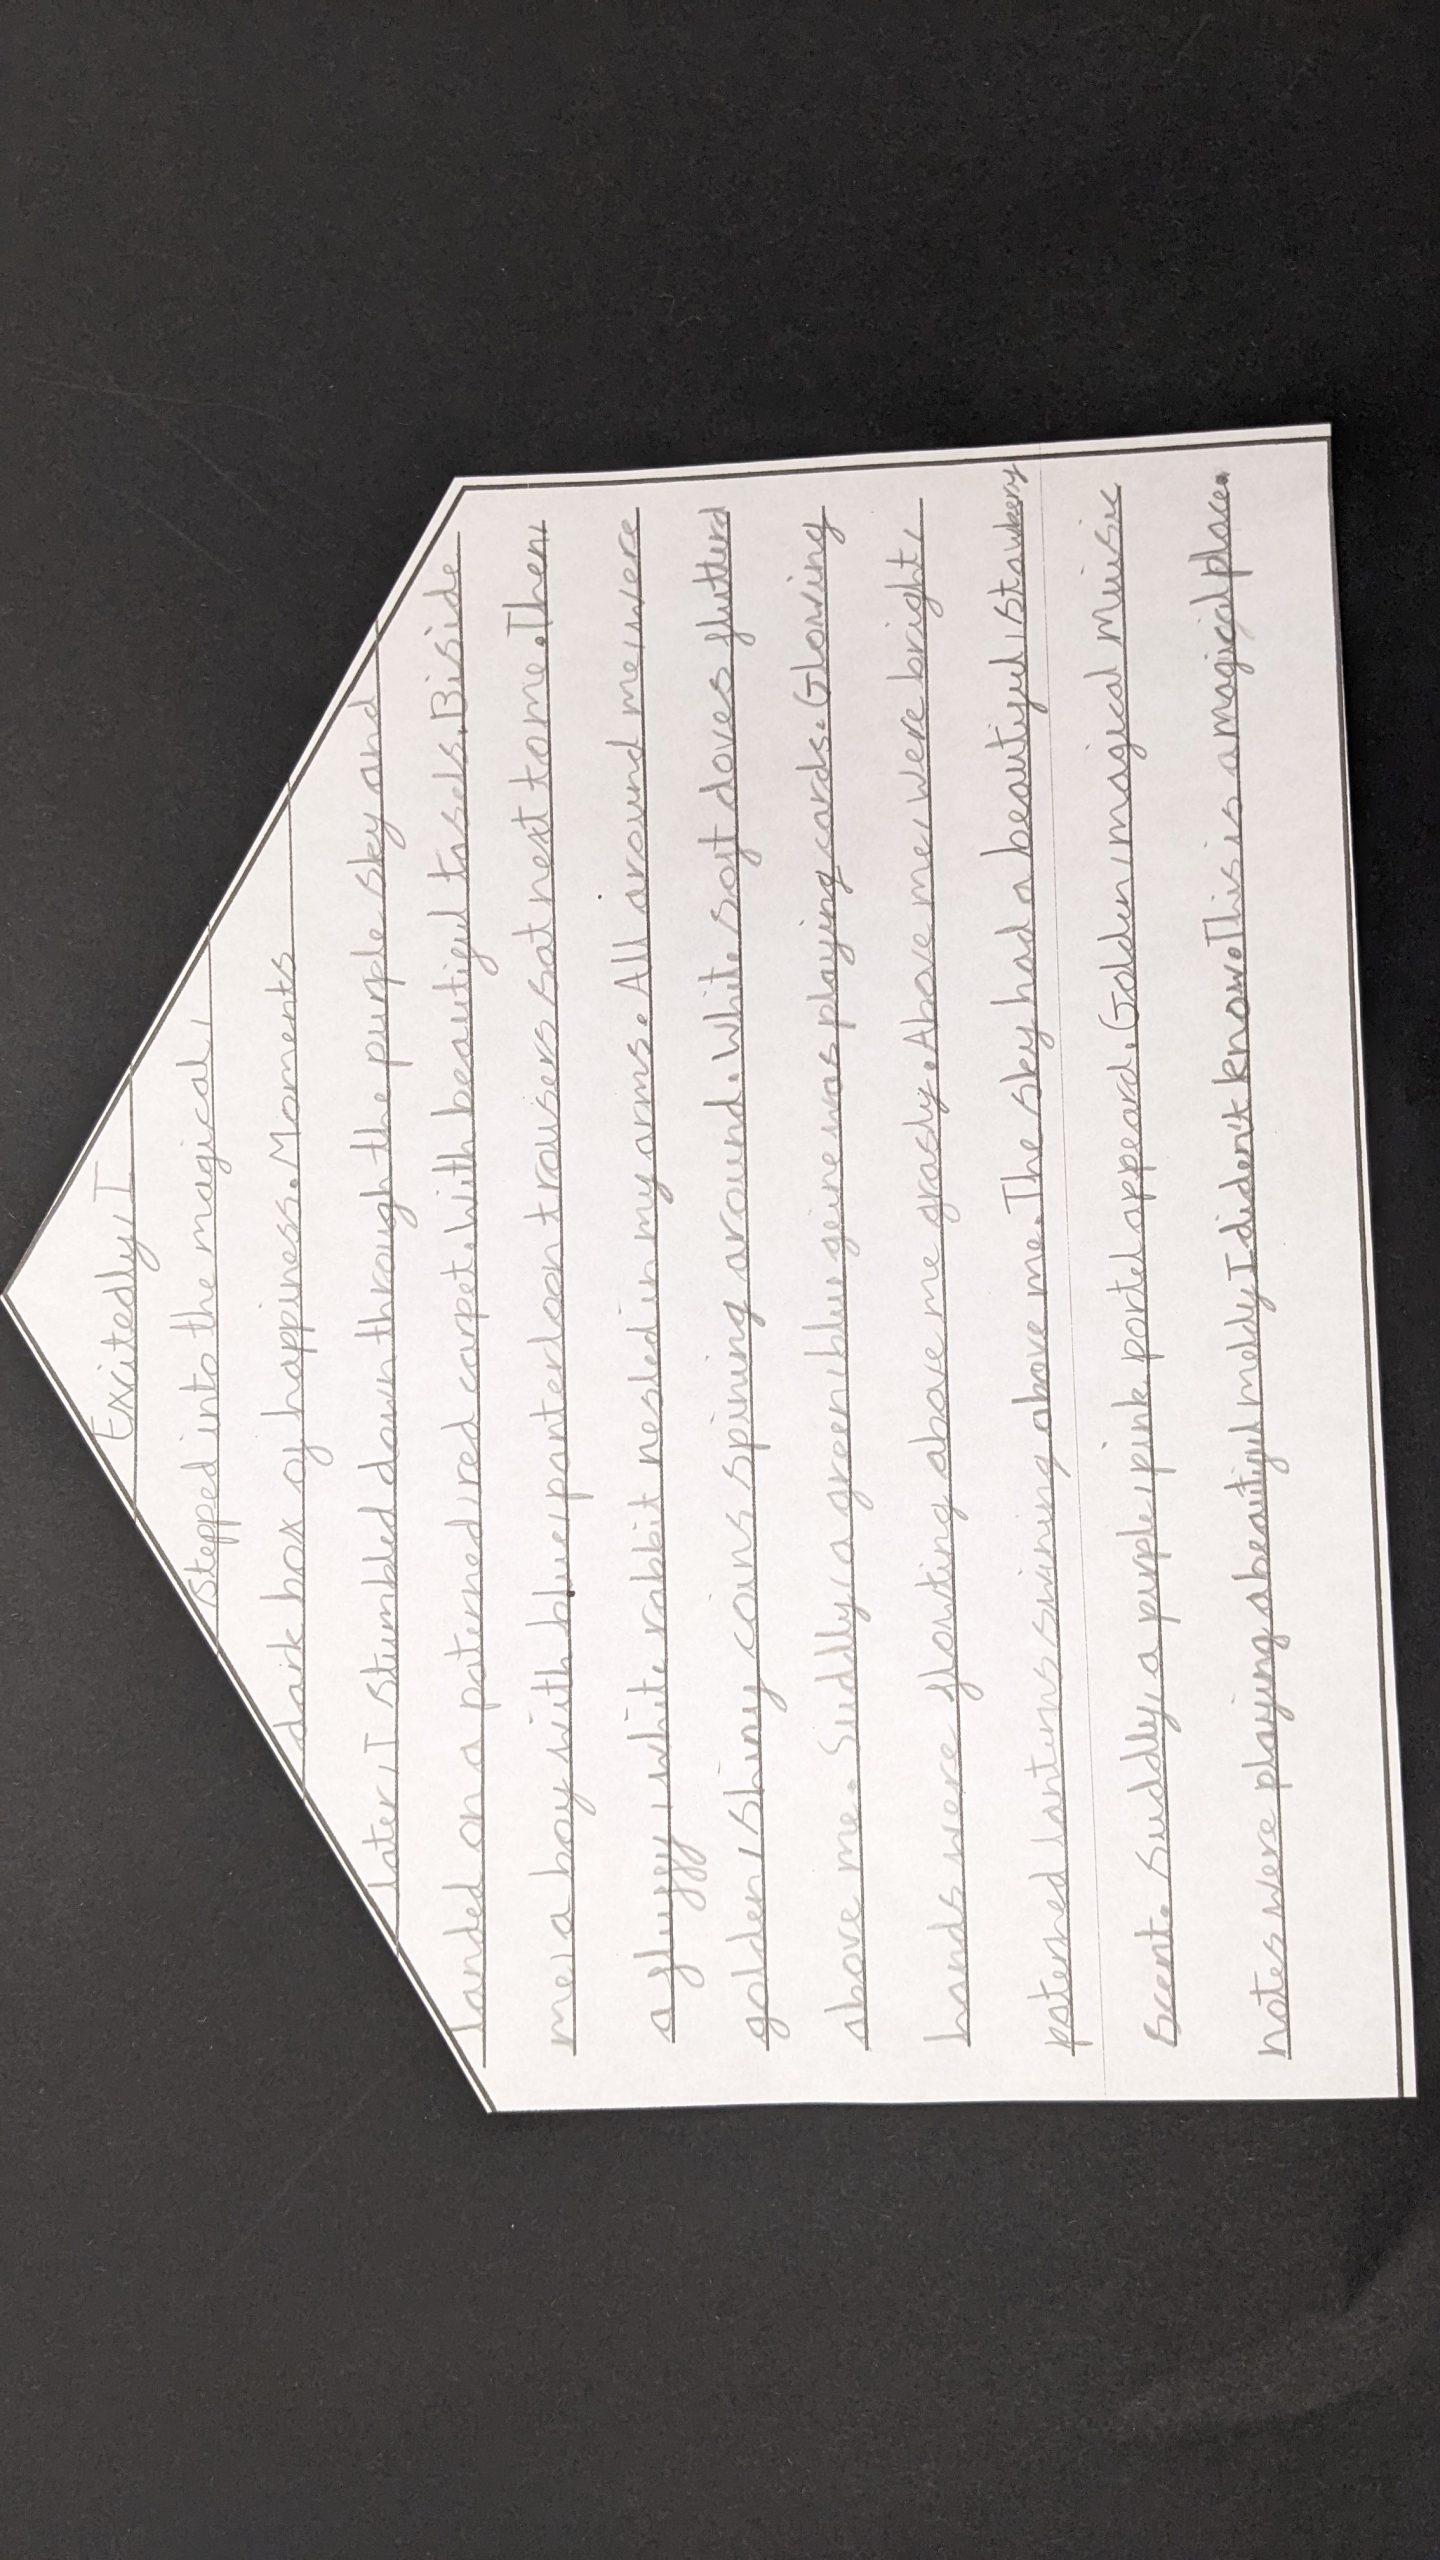 Excitedly, I
stepped into the magical,
dark box of happiness. Moments
later, I stumbled down through the purple sky and
landed on a paterned, red carpet. With beautiful tassels. Biside
me, a boy with blue, panterloon trousers sat next to me. Then,
a fluffy, white rabbit nesled in my arms. All around me, were
golden, shiny coins spining around. White soft doves flutterd
above me. Suddly, a green, blue geine was playing cards. Glowing
hands were floating above me grasfly. Above me, were bright,
paterned lanterns swining above me. The sky had a beautyful, stawbery
scent. Suddly, a purple, pink portel appeard. Golden, magical music
notes were playing a beautyful melody I dident know. This is a magical place.